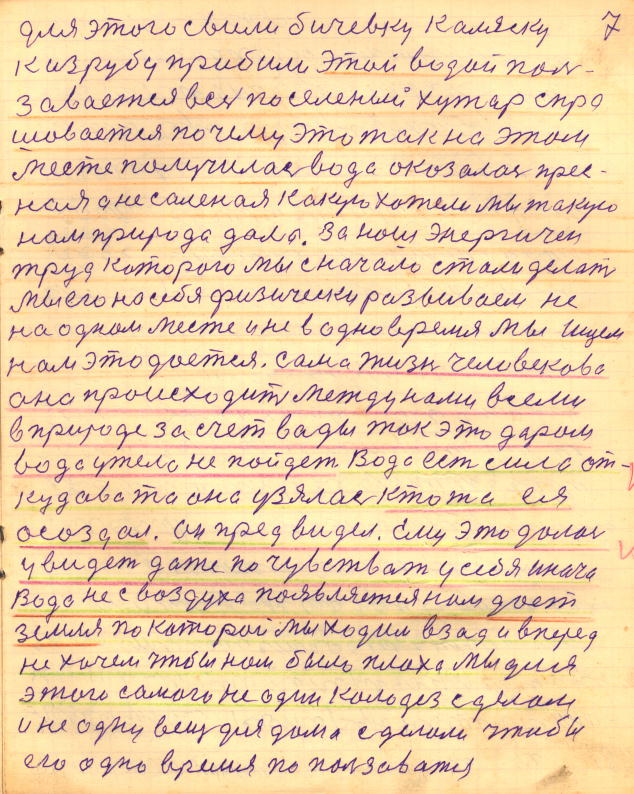 для этого свили бичевку Каляску 7
К изрубу прибили Этой водой пол-
завается весь поселеный хутар спра
шовается почему Это так на этом
месте получилас вода оказалас прес-
ная а не саленая Какую хотели мы такую
нам природа дала. За наш Энергичен
труд которого мы сначало стали делат
мы его на себя физически развиваем не
на одном месте и не в одно время мы ищем
нам это дается. сама жизн человекова
она происходит между нами всеми
в природе за счет вады так это даром
вода ужела не пойдет Вода ест сила от-
кудава та она узялас кто та ея
осоздал. он предвидел. Ему это далос
увидет даже почувствват у себя иначе
Вода не с воздуха появляется нам дает
земля по которой мы ходим взад и вперед
не хочем чтбы нам было плаха мы для
этого самого не один Колодез сделали
и не одну вещ для дома сделали чтобы
его одно время по ползоватя